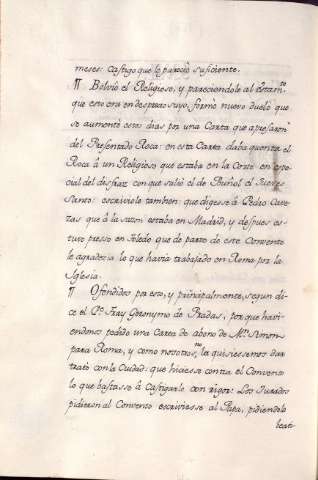 meses: Castigo que le pareció suficiente.
¶ Bolvió el Religioso, y pareciendole al Estam.to
que esto era en desprecio suyo, formò nuevo duelo que
se aumentò estos dias por una Carta que apresaron
del Presentado Roca: en esta Carta daba quenta el
Roca à un Religioso que estaba en la Corte en espe
cial del disfraz con que saliò el de Buñol el Jueves
Santo: escriviole tambien que digesse à Pedro Cuve
tas que à la sazon estaba en Madrid, y despues es-
tuvo presso en Toledo que de parte de este Convento
le agradecia lo que havia trabajado en Roma por la
Iglesia.
¶ Ofendidos por esto, y principalmente, segun di
ce el P.e Fray Geronymo de Pradas, por que havi-
endonos pedido una Carta de abono de M.n Simon
para Roma, y como nosotros no la quisiessemos dar
tratò con la Ciudad: que hiciesse contra el Convento
lo que bastasse à Castigarle con rigor: Los Jurados
pidieron al Convento escriviesse al Papa, pidiendole